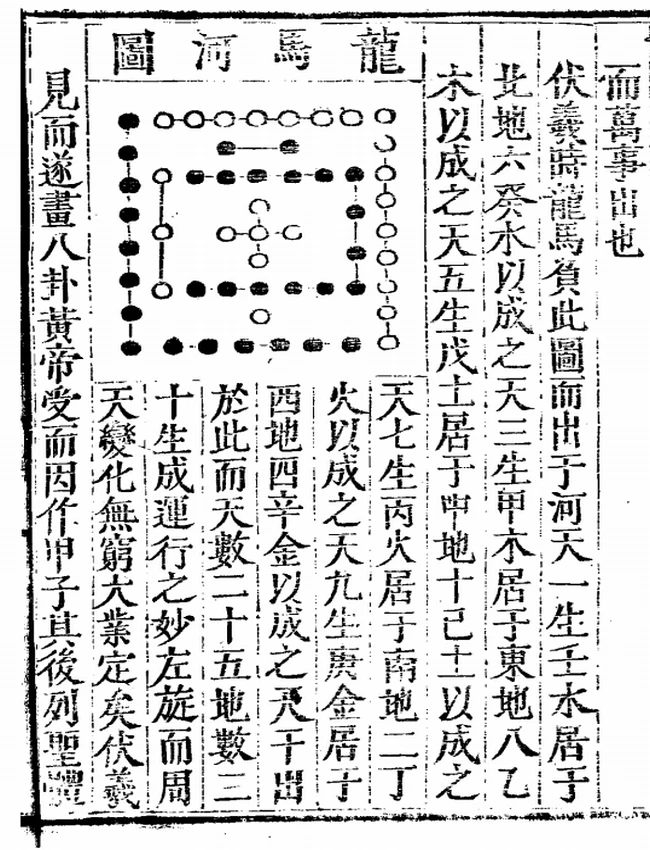 而萬事出也
伏羲時龍馬負此圖而出于河天一生壬水居于
北地六癸水以成之天三生甲木居于東地八乙
木以成之天五生戊土居于中地十己土以成之
龍馬河圖
天七生丙火居于南地二丁
火以成之天九生庚金居于
西地四辛金以成之天干出
於此而天數二十五地數三
十生成運行之妙左旋而周
天變化無窮大業定矣伏羲
見而遂畫八卦黃帝受而因作甲子其後列聖體